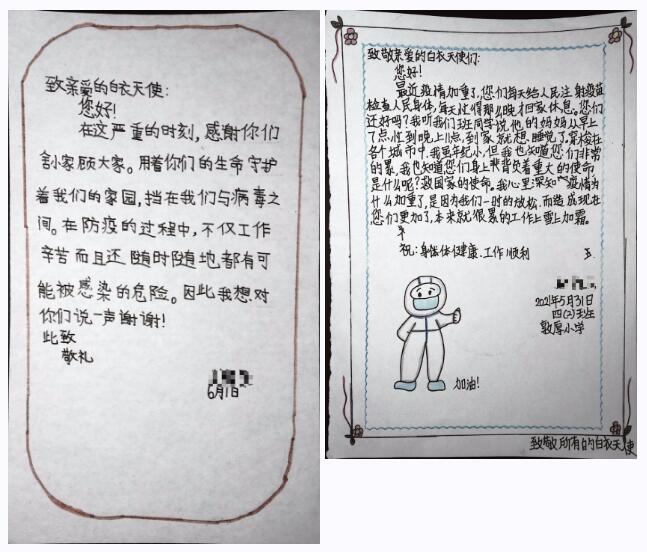 致亲爱的白衣天使:
您好!
在这严重的时刻,感谢你们
舍小家顾大家。用着你们的生命守护
着我们的家园,挡在我们与病毒之
间。在防疫的过程中,不仅工作
辛苦而且还随时随地都有可
能被感染的危险。因此我想对
你们说一声谢谢!
此致
敬礼
6月1日
致敬亲爱的白衣天使们:
您好!
最近疫情加重了,您们每天给人民注射疫苗
检查人民身体,每天忙得那么晚才回家休息。您们
还好吗?我听我们班同学说他的妈妈从早上
7点,忙到晚上11点,到家就想睡觉了,穿梭在
各个城市中,我虽年纪小,但我也知道您们非常
的累,我也知道您们身上背负着重大的使命
是什么呢?救国家的使命。我心里深知疫情为
什么加重了,是因为我们一时的放松,而造成现在
您们更加了,本来就很累的工作上雪上加霜。
祝:身体健康、工作顺利
2021年5月31日
四(2)班
敦厚小学
加油!
致敬所有的白衣天使